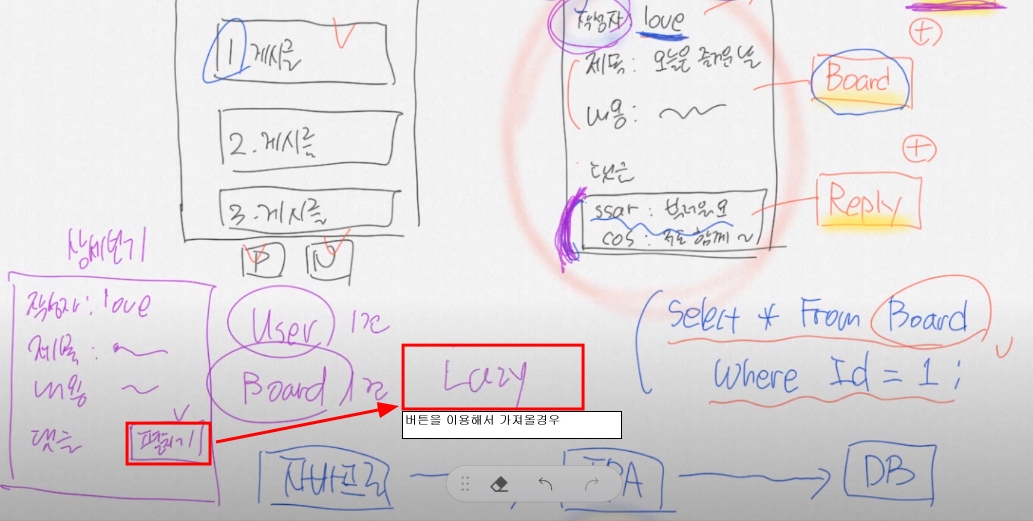 1 게시글
2. 게시글
3. 게시글
P N
작성자 love
제목: 오늘은 즐거운 날
내용:
댓글
ssar: 부러워요
cos: 저도 함께
Board
Reply
상세보기
작성자: love
제목:
내용
댓글 펼치기
User 1건
Board 1건
Lazy
버튼을 이용해서 가져올경우
Select * From Board
Where Id = 1;
자바프로
DB